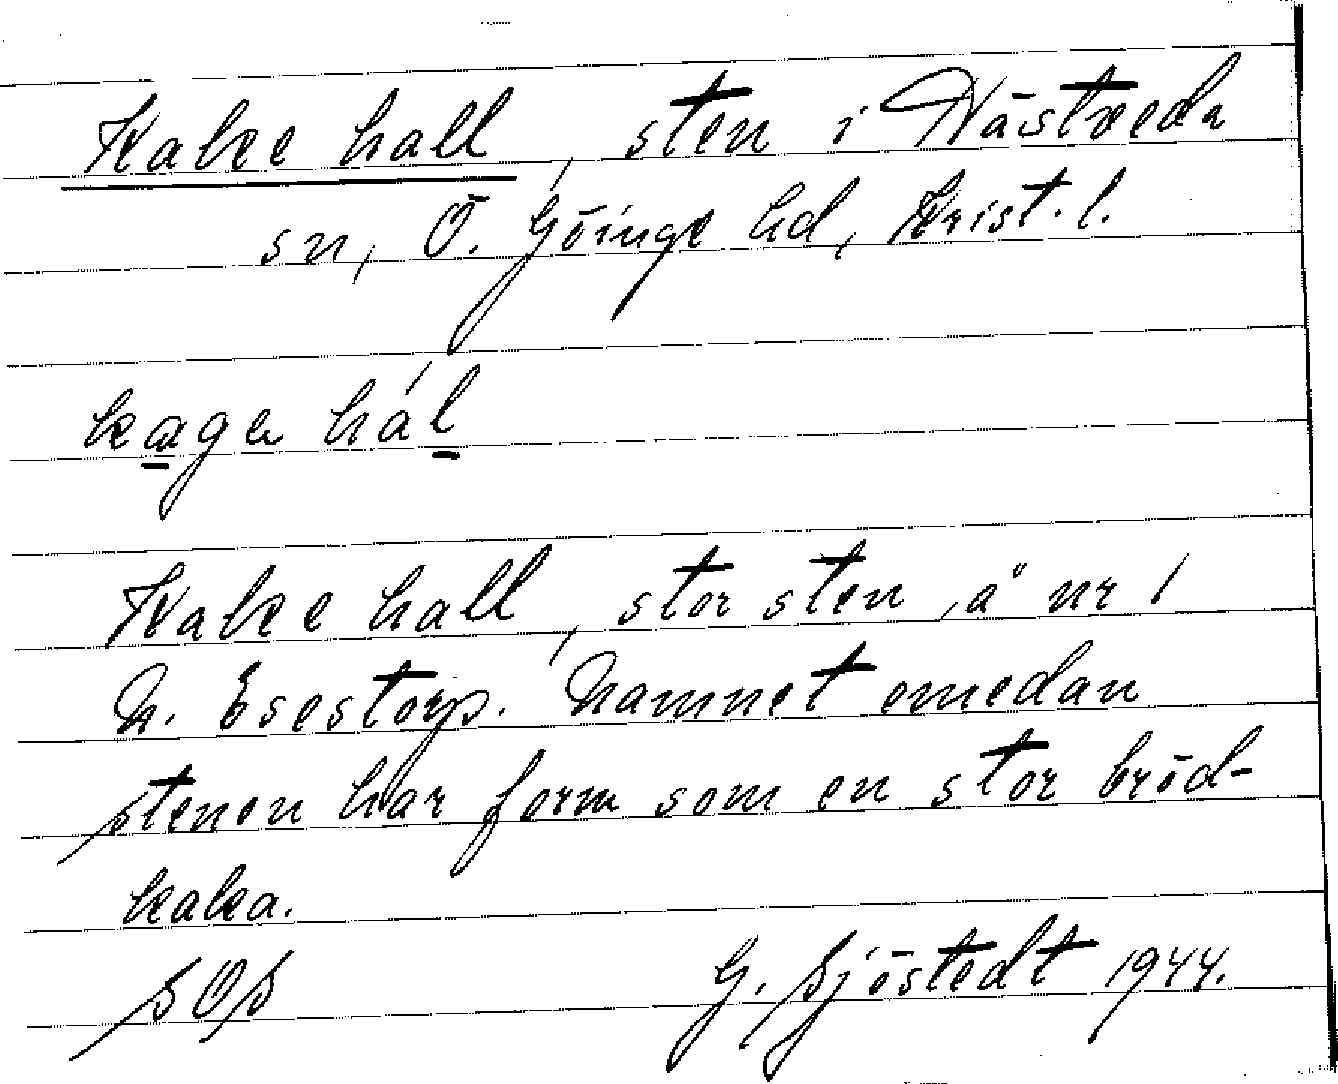 Kake hall, sten i Nästveda
sn, Ö. Göinge hd, Krist. l.
kaga hál
Kake hall, stor sten, å nr 1
N. Esestorp. Namnet emedan
stenen har form som en stor bröd-
kaka.
SOS G. Sjöstedt 1944.